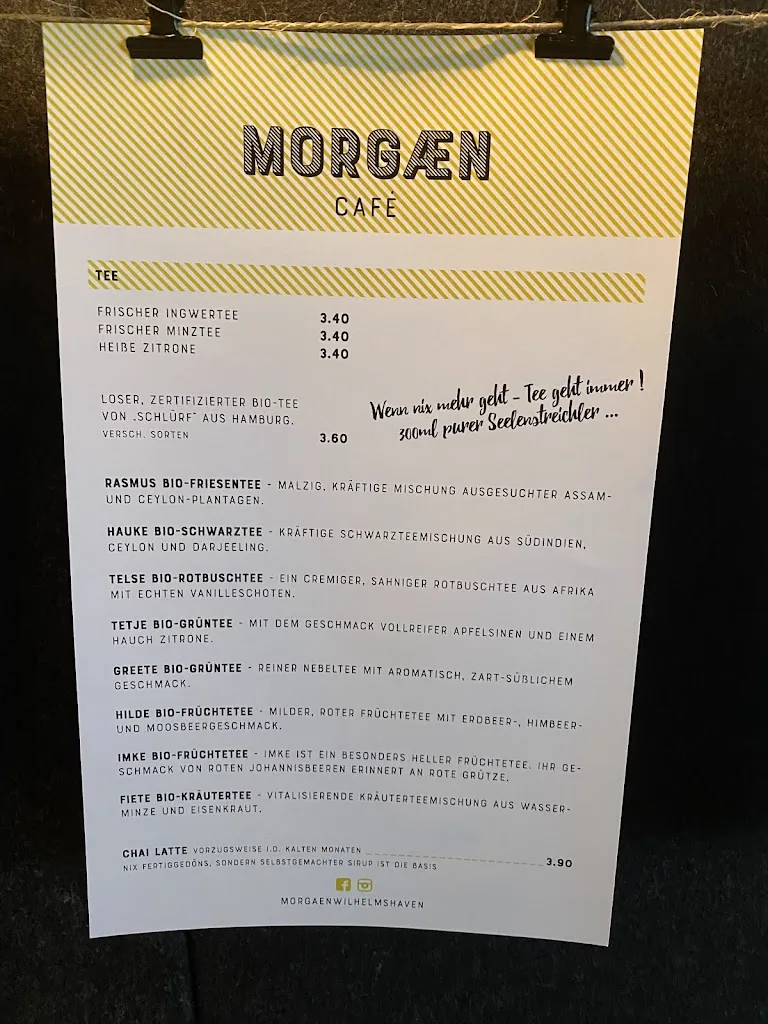 MORGÆN
CAFÉ
TEE
FRISCHER INGWERTEE 3.40
FRISCHER MINZTEE 3.40
HEIẞE ZITRONE 3.40
LOSER, ZERTIFIZIERTER BIO-TEE
VON „SCHLÜRF" AUS HAMBURG.
VERSCH. SORTEN 3.60
Wenn nix mehr geht - Tee geht immer !
300ml purer Seelenstreichler ...
RASMUS BIO-FRIESENTEE - MALZIG, KRÄFTIGE MISCHUNG AUSGESUCHTER ASSAM-
UND CEYLON-PLANTAGEN.
HAUKE BIO-SCHWARZTEE - KRÄFTIGE SCHWARZTEEMISCHUNG AUS SÜDINDIEN,
CEYLON UND DARJEELING.
TELSE BIO-ROTBUSCHTEE - EIN CREMIGER, SAHNIGER ROTBUSCHTEE AUS AFRIKA
MIT ECHTEN VANILLESCHOTEN.
TETJE BIO-GRÜNTEE - MIT DEM GESCHMACK VOLLREIFER APFELSINEN UND EINEM
HAUCH ZITRONE.
GREETE BIO-GRÜNTEE - REINER NEBELTEE MIT AROMATISCH, ZART-SÜẞLICHEM
GESCHMACK.
HILDE BIO-FRÜCHTETEE - MILDER, ROTER FRÜCHTETEE MIT ERDBEER-, HIMBEER-
UND MOOSBEERGESCHMACK.
IMKE BIO-FRÜCHTETEE - IMKE IST EIN BESONDERS HELLER FRÜCHTETEE. IHR GE-
SCHMACK VON ROTEN JOHANNISBEEREN ERINNERT AN ROTE GRÜTZE.
FIETE BIO-KRÄUTERTEE - VITALISIERENDE KRÄUTERTEEMISCHUNG AUS WASSER-
MINZE UND EISENKRAUT.
CHAI LATTE VORZUGSWEISE I.D. KALTEN MONATEN 3.90
NIX FERTIGGEDÖNS, SONDERN SELBSTGEMACHTER SIRUP IST DIE BASIS
MORGAENWILHELMSHAVEN